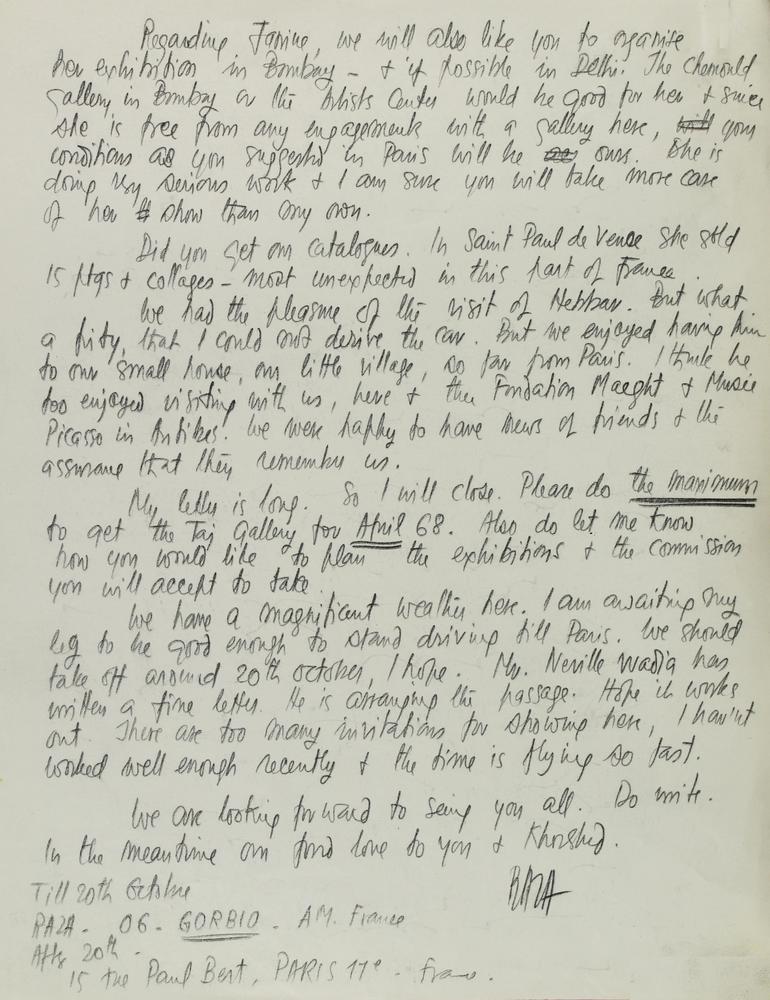 Regarding Janine, we will also like you to organise
her exhibition in Bombay - & if possible in Delhi. The Chemould
Gallery in Bombay or the Artists Center would be good for her & since
she is free from any engagements with a gallery here, will your
conditions as you suggested in Paris will be ours. She is
doing very serious work & I am sure you will take more care
of her show than my own.
Did you get our catalogues. In Saint Paul de Vence she sold
15 ptgs & collages - most unexpected in this part of France.
We had the pleasure of the visit of Hebbar. But what
a pity, that I could not derive the car. But we enjoyed having him
to our small house, our little village, so far from Paris. I think he
too enjoyed visiting with us, here & the Fondation Maeght & Musée
Picasso in Antibes. We were happy to have news of friends & the
assurance that they remember us.
My letter is long. So I will close. Please do the maximum
to get the Taj Gallery for April 68. Also do let me know
how you would like to plan the exhibitions & the commission
you will accept to take.
We have a magnificent weather here. I am awaiting my
leg to be good enough to stand driving till Paris. We should
take off around 20th october, I hope. Mr. Neville Wadia has
written a fine letter. He is arranging the passage. Hope it works
out. There are too many invitations for showing here, I hav'nt
worked well enough recently & the time is flying so fast.
We are looking forward to seing you all. Do write.
In the meantime our fond love to you & Khorshed.
RAZA
Till 20th Octobre
RAZA - 06 - GORBIO - A.M. France
After 20th -
15 rue Paul Bert, PARIS 11e - France.